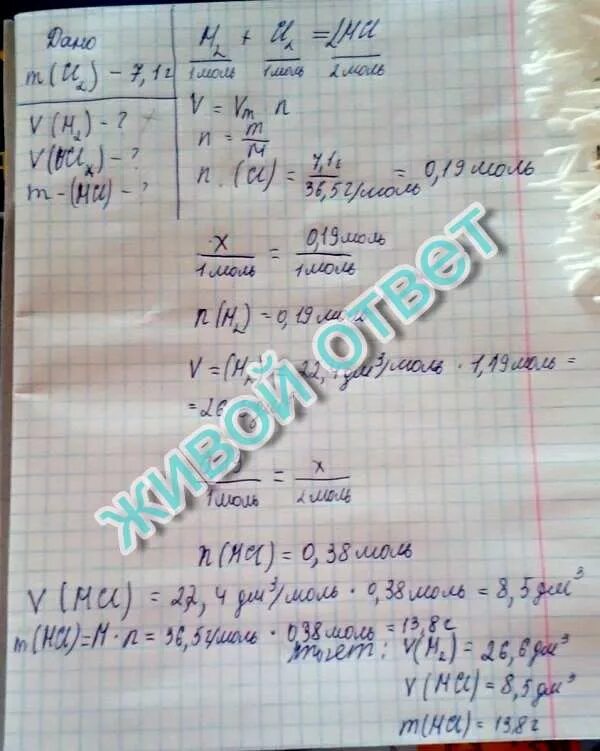 Дано
m(Cl₂) - 7,1г
V(H₂) - ?
V(HCl) - ?
m-(HCl) - ?
H₂ + Cl₂ = 2HCl
1моль 1моль 2моль
V = Vm n
n = m/M
n (Cl) = 7,1г/36,5г/моль = 0,19моль
x/1моль = 0,19моль/1моль
n(H₂) = 0,19
V = (H₂) 22,4 дм³/моль · 1,19моль =
= 26
/1моль = x/2моль
n(HCl) = 0,38моль
V(HCl) = 22,4 дм³/моль · 0,38моль = 8,5дм³
m(HCl) = M · n = 36,5г/моль · 0,38моль = 13,8г
Ответ: V(H₂) = 26,6дм³
V(HCl) = 8,5дм³
m(HCl) = 13,8г
ЖИВОЙ ОТВЕТ